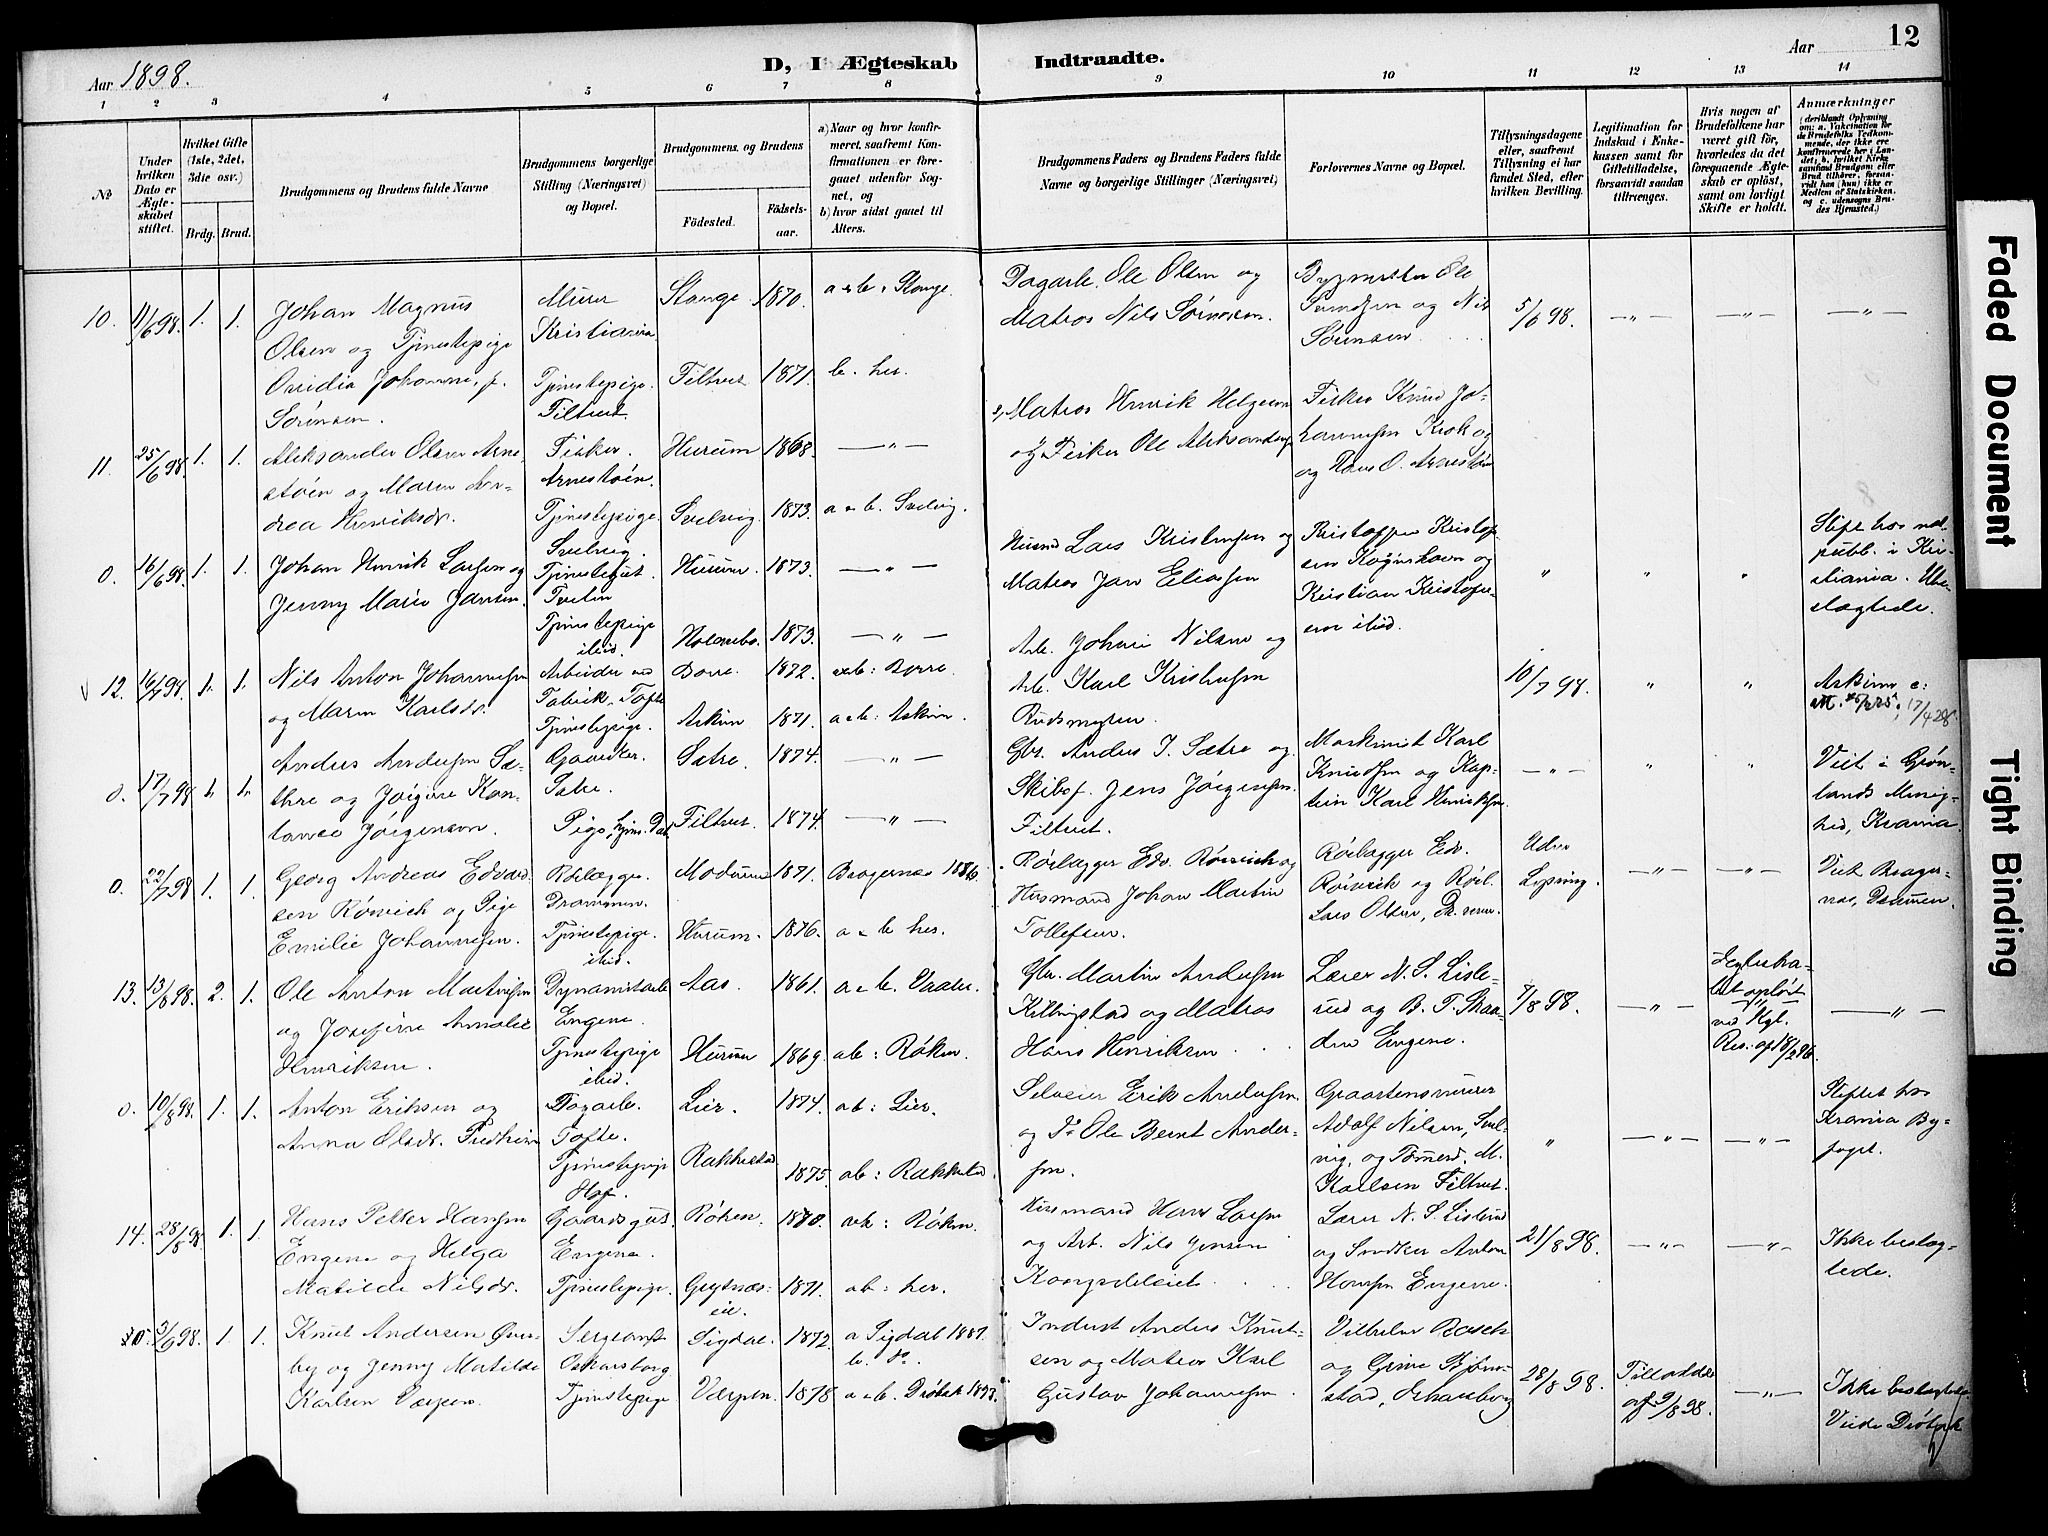 Aar 1898.
D, I Ægteskab Indtraadte.
Aar
12
1 2 3 4 5 6 7 8 9 10 11 12 13 14
No
Under hvilken Dato er Ægteskabet stiftet.
Hvilket Gifte (1ste, 2det, 3die osv.)
Brdg. Brud.
Brudgommens og Brudens fulde Navne
Brudgommens borgerlige Stilling (Næringsvei) og Bopæl.
Brudgommens og Brudens
Fødested. Fødselsaar.
a) Naar og hvor konfirmeret, saafremt Konfirmationen er foregaaet udenfor Sognet, og
b) hvor sidst gaaet til Alters.
Brudgommens Faders og Brudens Faders fulde Navne og borgerlige Stillinger (Næringsvei)
Forlovernes Navne og Bopæl.
Tillysningsdagene eller, saafremt Tillysning ei har fundet Sted, efter hvilken Bevilling.
Legitimation for Indskud i Enkekassen samt for Giftetilladelse, forsaavidt saadan tiltrænges.
Hvis nogen af Brudefolkene har været gift før, hvorledes da det foregaaende Ægteskab er opløst, samt om lovligt Skifte er holdt.
Anmærkninger
(deriblandt Oplysning om: a. Vakcination for de Brudefolks Vedkommende, der ikke ere konfirmerede her i Landet; b. hvilket Kirkesamfund Brudgom eller Brud tilhører, forsaavidt han (hun) ikke er Medlem af Statskirken, og c. udensogns Brudes Hjemsted.)
10. 11/6 98. 1. 1. Johan Magnus Olsen og Tjenestepige Ovidia Johanne, f. Sørensen.
Murer Kristiania Stange 1870. a & b. Stange.
Tjenestepige. Filtvet. Filtvet 1871. b. her.
Dagarb. Ole Olsen og Matros Nils Sørensen.
Ole og Nils Sørensen
5/6 98. — " — — " — — " —
11. 25/6 98. 1. 1. Aleksander Olsen Arnestøen og Maren Andrea Henriksdr.
Fisker. Arnestøen. Hurum 1868. — " —
Tjenestepige Svelvig. Svelvig. 1873. a & b. Svelvig.
Matros Henrik Helgesen og Fisker Ole Aleksandersen
Fisker Knud Johannesen Krok og Hans O. Arnestøen
0. 16/6 98. 1. 1. Johan Henrik Larsen og Jenny Marie Jansen.
Tjenestegut. Tveten Hurum 1873. — " —
Tjenestepige ibid. Holmsbo. 1873. — " —
Husmd Lars Kristensen og Matros Jan Eliassen
Kristoffer Kristofersen og Kristian Kristofersen ibid.
" " "
Stift. hos not. publ. i Kristiania. Ubeslægtede.
12. 16/7 98. 1. 1. Nils Anton Johannesen og Maren Karlsdr.
Arbeider ved Fabrik, Tofte Borre. 1872. a & b: Borre.
Tjenestepige. Askim 1871. a & b: Askim.
Arb. Johan Nilsen og Arb. Karl Kristensen Rudsmyren.
10/7 98. " "
Askim
0. 17/7 98 1. 1. Anders Andersen Sæthre og Jørgine Konstance Jørgensen.
Gaardbr. Sætre. Sætre. 1874. — " —
Pige Filtvet. 1874. — " —
Gbr. Anders J. Sætre og Skibsf. Jens Jørgensen. Filtvet.
Maskinist Karl Knudsen og Kaptein Karl Henriksen.
— " — " "
Viet i Grønlands Menighed, Krania.
0. 22/7 98 1. 1. Georg Andreas Edvardsen Rørvik og Pige Emilie Johannesen.
Rørlægger. Drammen. Modum 1871. Bragernes 1886.
Tjenestepige. ibid. Hurum. 1876. a & b her.
Rørlægger Edv. Rørvik og Husmand Johan Martin Tollefsen.
Rørlægger Edv. Rørvik og Rørl. Lars Olsen, Drammen.
Uden Lysning. — " — — " —
Viet Bragernæs, Drammen.
13. 13/8 98. 2. 1. Ole Anton Martinsen og Josefine Amalie Henriksen.
Dynamitarb. Engene. Aas. 1861. a & b. Vaaler.
Tjenestepige ibid. Hurum 1869. ab: Røken.
Gbr. Martin Andersen Killingstad og Matros Hans Henriksen
Lærer N. S. Lislerud og B. T. Engene.
7/8 98. — " —
Ægteskabet opløst ved Kgl. Res. af 18/2 96.
— " —
0. 10/8 98. 1. 1. Anton Eriksen og Anna Olsdr. Fredheim
Dagarb. Tofte. Lier. 1874. ab: Lier.
Tjenestepige Hof. Rakkestad 1875. ab: Rakkestad
Selveier Erik Andersen. og F. Ole Bernt Andersen.
Graastensmurer Adolf Nilsen, Svelvig, og Tømmerm. M. Karlsen Filtvet.
" — " — — " —
Stiftet hos Krania Byfoget.
14. 28/8 98. 1. 1. Hans Petter Hansen Engene og Helga Matilde Nilsdr.
Gaardsgut Engene. Røken. 1870. ab: Røken
Tjenestepige. Grytnæseie. 1871. ab: her.
Husmand Hans Larsen og Arb. Nils Jensen Kongsdeleiet.
Lærer N. S. Lislerud og Snedker Anton Hansen Engene.
21/8 98. — " — — " —
Ikke beslægtede.
3/9 98. 1. 1. Knut Andersen Øverby og Jenny Matilde KarlsenVærpen.
Sergeant Oskarsborg Sigdal. 1872. a Sigdal 1887. b. do.
Tjenestepige Værpen. 1878 a & b. Drøbak 1893.
Inderst Anders Knutsen og Matros Karl Gustav Johannesen.
Vilhelm Bosch og Bjørnstad, Oskarsborg
28/8 98. Tilladelse af 9/8 98. — " —
Ikke beslægtede. Viede Drøbak
Faded Document
Tight Binding